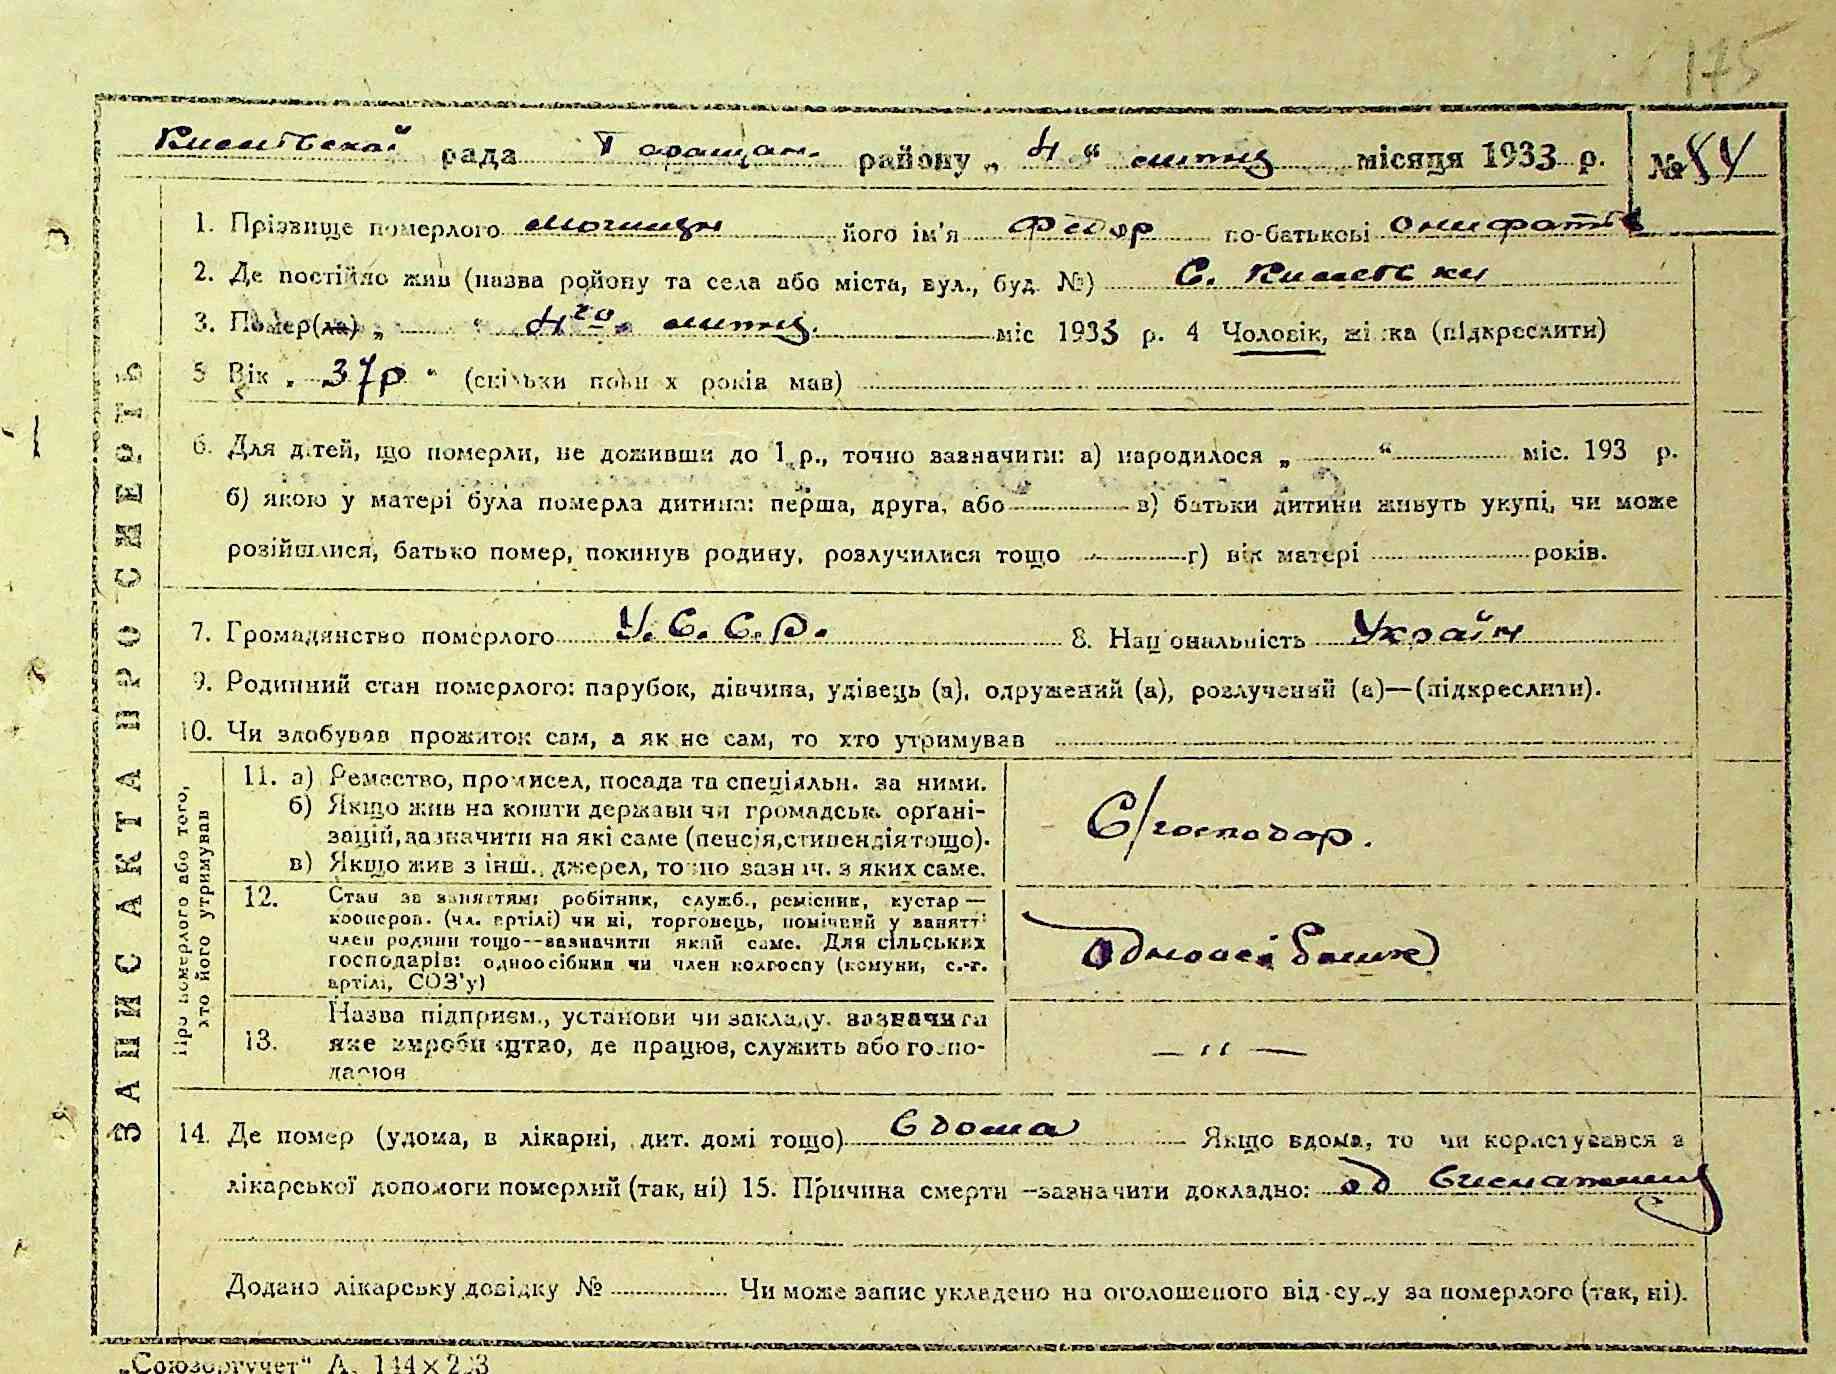 175
рада Таращан. району „ 4 “ липня місяця 1933 р. № 84
1. Прізвище померлого його ім'я Федор по-батькові Онифатів
2. Де постійно жив (назва району та села або міста, вул., буд. №) С.
3. Помер(ла) „ “ 4го липня. міс 1933 р. 4 Чоловік, жінка (підкреслити)
5 Вік „ 37р “ (скільки повних років мав)
6. Для дітей, що померли, не доживши до 1 р., точно зазначити: а) народилося „ “ міс. 193 р.
б) якою у матері була померла дитина: перша, друга, або в) батьки дитини живуть укупі, чи може
розійшлися, батько помер, покинув родину, розлучилися тощо г) вік матері років.
7. Громадянство померлого У.С.С.Р. 8. Національність Україн
9. Родинний стан померлого: парубок, дівчина, удівець (а), одружений (а), розлучений (а)—(підкреслити).
10. Чи здобував прожиток сам, а як не сам, то хто утримував
ЗАПИС АКТА ПРО СМЕРТЬ
Про померлого або того,
хто його утримував
11. а) Ремество, промисел, посада та спеціяльн. за ними.
б) Якщо жив на кошти держави чи громадськ. орґані-
зацій, зазначити на які саме (пенсія, стипендія тощо).
в) Якщо жив з інш. джерел, точно зазнич. з яких саме.
С/господар.
12. Стан за заняттям: робітник, служб., ремісник, кустар—
кооперов. (чл. артілі) чи ні, торговець, помічний у занятті
член родини тощо—зазначити який саме. Для сільських
господарів: одноосібник чи член колгоспу (комуни, с.-г.
артілі, СОЗ'у)
Одноосібник
13. Назва підприєм., установи чи закладу. зазначити
яке виробництво, де працює, служить або госпо-
дарює
— „ —
14. Де помер (удома, в лікарні, дит. домі тощо) Вдома Якщо вдома, то чи користувався з
лікарської допомоги померлий (так, ні) 15. Причина смерти —зазначити докладно: од виснаження
Додано лікарську довідку № Чи може запис укладено на оголошеного від суду за померлого (так, ні).
„Союзоргучет“ А. 144×2 3